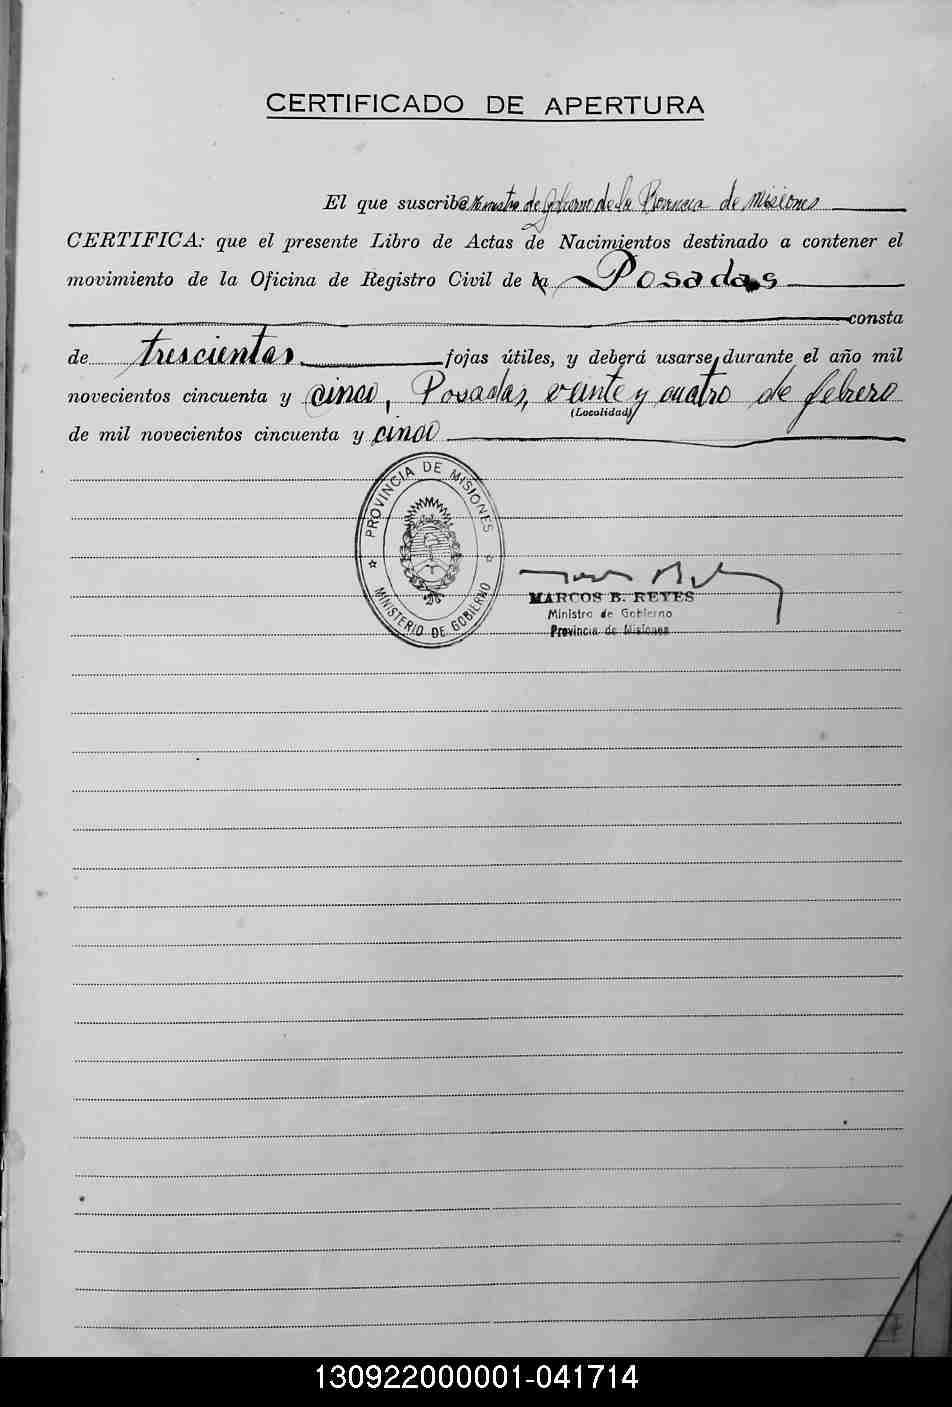 CERTIFICADO DE APERTURA
El que suscribe Ministro de Gobierno de la Provincia de Misiones
CERTIFICA: que el presente Libro de Actas de Nacimientos destinado a contener el
movimiento de la Oficina de Registro Civil de la Posadas
consta
de trescientas fojas útiles, y deberá usarse durante el año mil
novecientos cincuenta y cinco, Posadas, veinte y cuatro de febrero
(Localidad)
de mil novecientos cincuenta y cinco
PROVINCIA DE MISIONES
MINISTERIO DE GOBIERNO
MARCOS B. REYES
Ministro de Gobierno
Provincia de Misiones
130922000001-041714